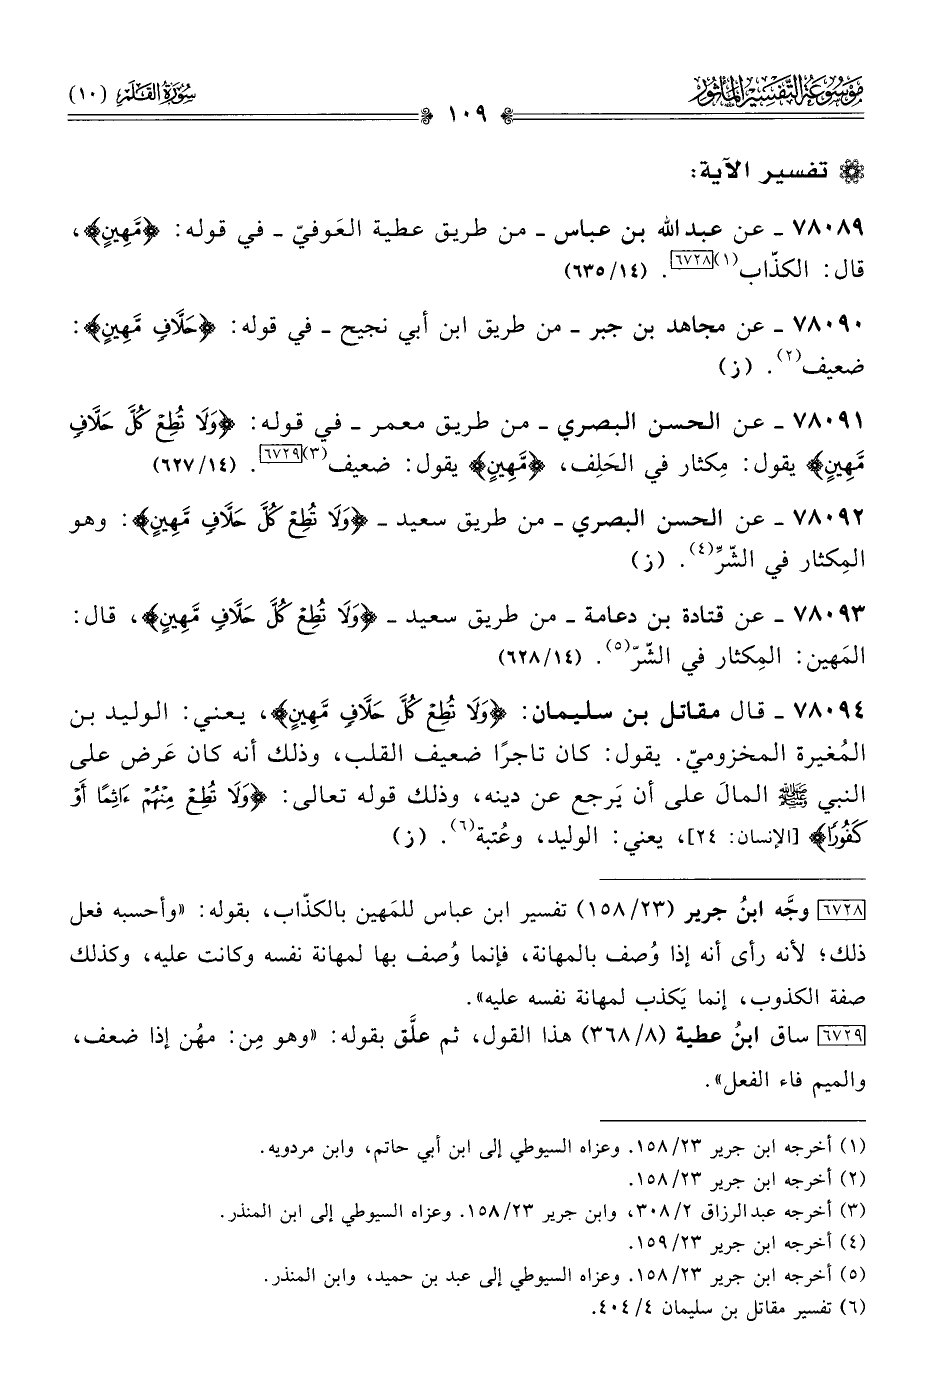 موسوعة التفسير المأثور
سورة القلم (١٠)
١٠٩
تفسير الآية:
٧٨٠٨٩ ـ عن عبد الله بن عباس ـ من طريق عطية العَوفيّ ـ في قوله: ﴿مَّهِينٍ﴾،
قال: الكذّاب(١)[٦٧٢٨]. (١٤/ ٦٣٥)
٧٨٠٩٠ ـ عن مجاهد بن جبر ـ من طريق ابن أبي نجيح ـ في قوله: ﴿حَلَّافٍ مَّهِينٍ﴾:
ضعيف(٢). (ز)
٧٨٠٩١ ـ عن الحسن البصري ـ من طريق معمر ـ في قوله: ﴿وَلَا تُطِعْ كُلَّ حَلَّافٍ
مَّهِينٍ﴾ يقول: مِكثار في الحَلِف، ﴿مَّهِينٍ﴾ يقول: ضعيف(٣)[٦٧٢٩]. (١٤/ ٦٢٧)
٧٨٠٩٢ ـ عن الحسن البصري ـ من طريق سعيد ـ ﴿وَلَا تُطِعْ كُلَّ حَلَّافٍ مَّهِينٍ﴾: وهو
المِكثار في الشّرِّ(٤). (ز)
٧٨٠٩٣ ـ عن قتادة بن دعامة ـ من طريق سعيد ـ ﴿وَلَا تُطِعْ كُلَّ حَلَّافٍ مَّهِينٍ﴾، قال:
المَهين: المِكثار في الشّرّ(٥). (١٤/ ٦٢٨)
٧٨٠٩٤ ـ قال مقاتل بن سليمان: ﴿وَلَا تُطِعْ كُلَّ حَلَّافٍ مَّهِينٍ﴾، يعني: الوليد بن
المُغيرة المخزوميّ. يقول: كان تاجرًا ضعيف القلب، وذلك أنه كان عَرض على
النبي ﷺ المالَ على أن يَرجع عن دينه، وذلك قوله تعالى: ﴿وَلَا تُطِعْ مِنْهُمْ ءَاثِمًا أَوْ
كَفُورًا﴾ [الإنسان: ٢٤]، يعني: الوليد، وعُتبة(٦). (ز)
[٦٧٢٨] وجَّه ابنُ جرير (٢٣/ ١٥٨) تفسير ابن عباس للمَهين بالكذّاب، بقوله: «وأحسبه فعل
ذلك؛ لأنه رأى أنه إذا وُصف بالمهانة، فإنما وُصف بها لمهانة نفسه وكانت عليه، وكذلك
صفة الكذوب، إنما يَكذب لمهانة نفسه عليه».
[٦٧٢٩] ساق ابنُ عطية (٨/ ٣٦٨) هذا القول، ثم علَّق بقوله: «وهو مِن: مهُن إذا ضعف،
والميم فاء الفعل».
(١) أخرجه ابن جرير ٢٣/ ١٥٨. وعزاه السيوطي إلى ابن أبي حاتم، وابن مردويه.
(٢) أخرجه ابن جرير ٢٣/ ١٥٨.
(٣) أخرجه عبد الرزاق ٢/ ٣٠٨، وابن جرير ٢٣/ ١٥٨. وعزاه السيوطي إلى ابن المنذر.
(٤) أخرجه ابن جرير ٢٣/ ١٥٩.
(٥) أخرجه ابن جرير ٢٣/ ١٥٨. وعزاه السيوطي إلى عبد بن حميد، وابن المنذر.
(٦) تفسير مقاتل بن سليمان ٤/ ٤٠٤.